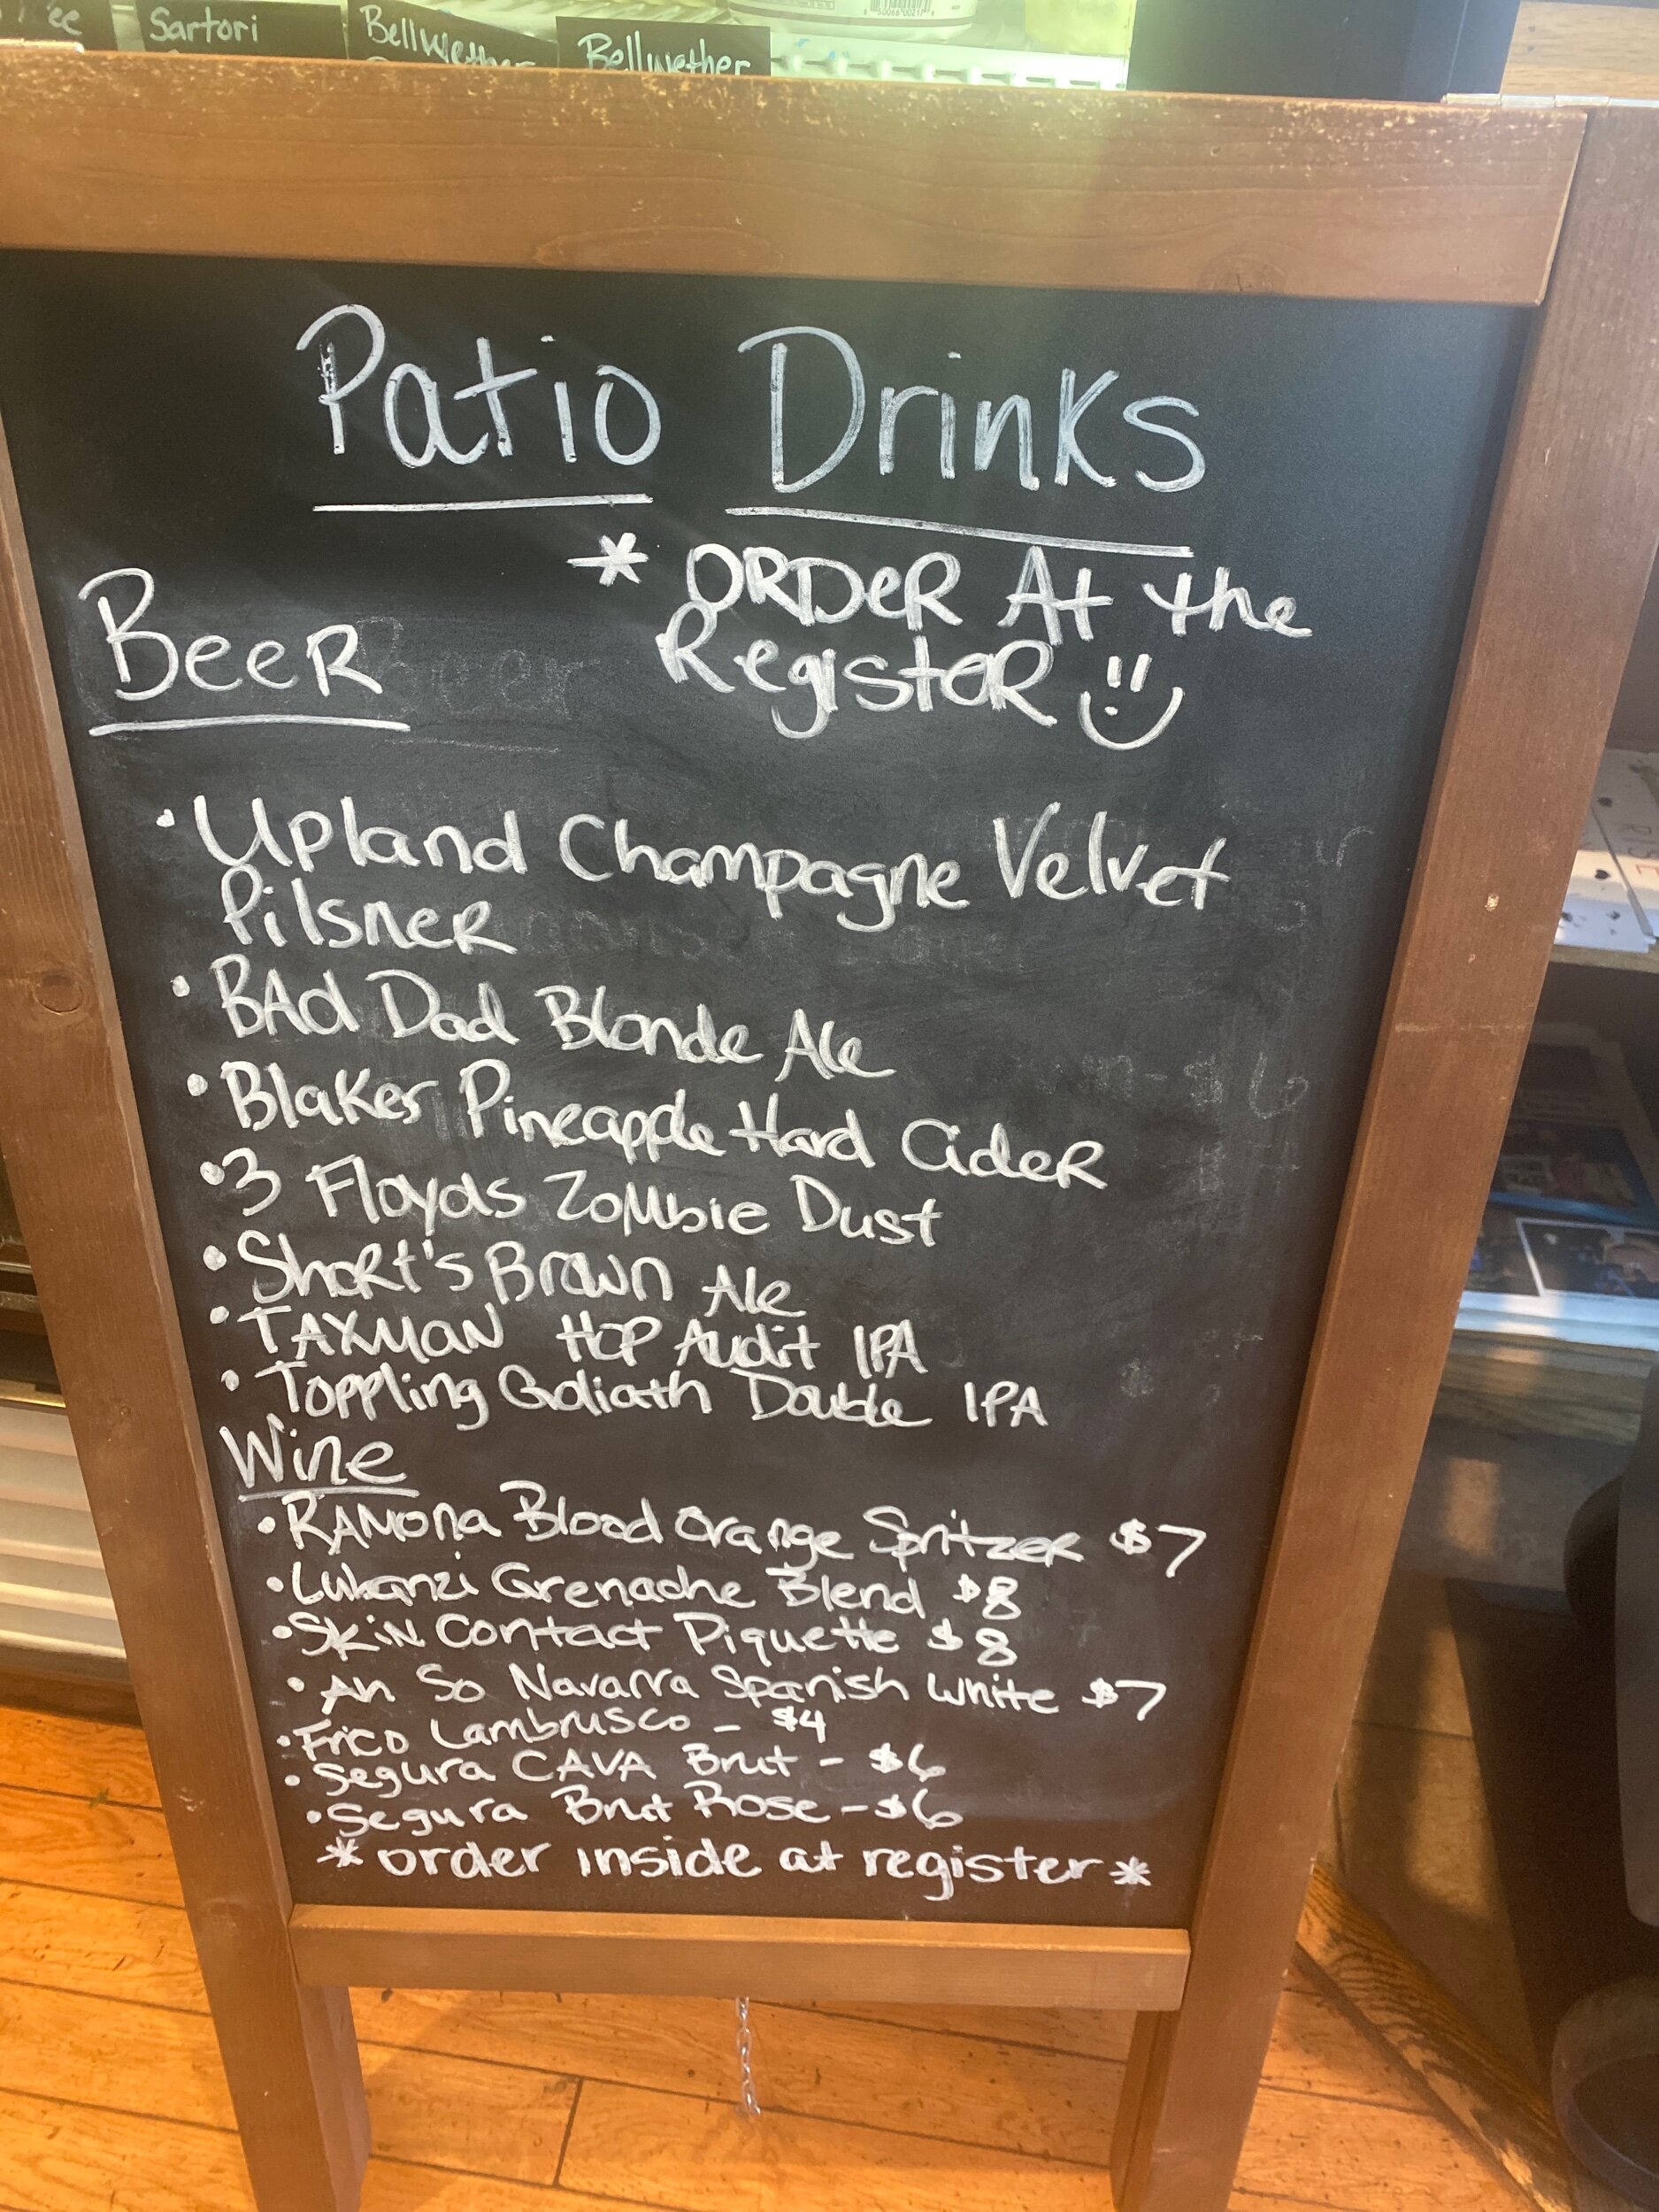 Sartori
Bellwether
Bellwether
Patio Drinks
* ORDER At the
RegisteR
BeeR
• Upland Champagne Velvet
PilsneR
• BAd Dad Blonde Ale
• Blakes Pineapple Hard CideR
• 3 Floyds Zombie Dust
• ShoRt's Brown Ale
• TAXMAN HOP Audit IPA
• Toppling Goliath Double IPA
Wine
• RAMona Blood Orange Spritzer $7
• Lukanzi Grenache Blend $8
• Skin Contact Piquette $8
• An So Navarra Spanish White $7
• Frico Lambrusco - $4
• Segura CAVA Brut - $6
• Segura Brut Rose - $6
* order inside at register *